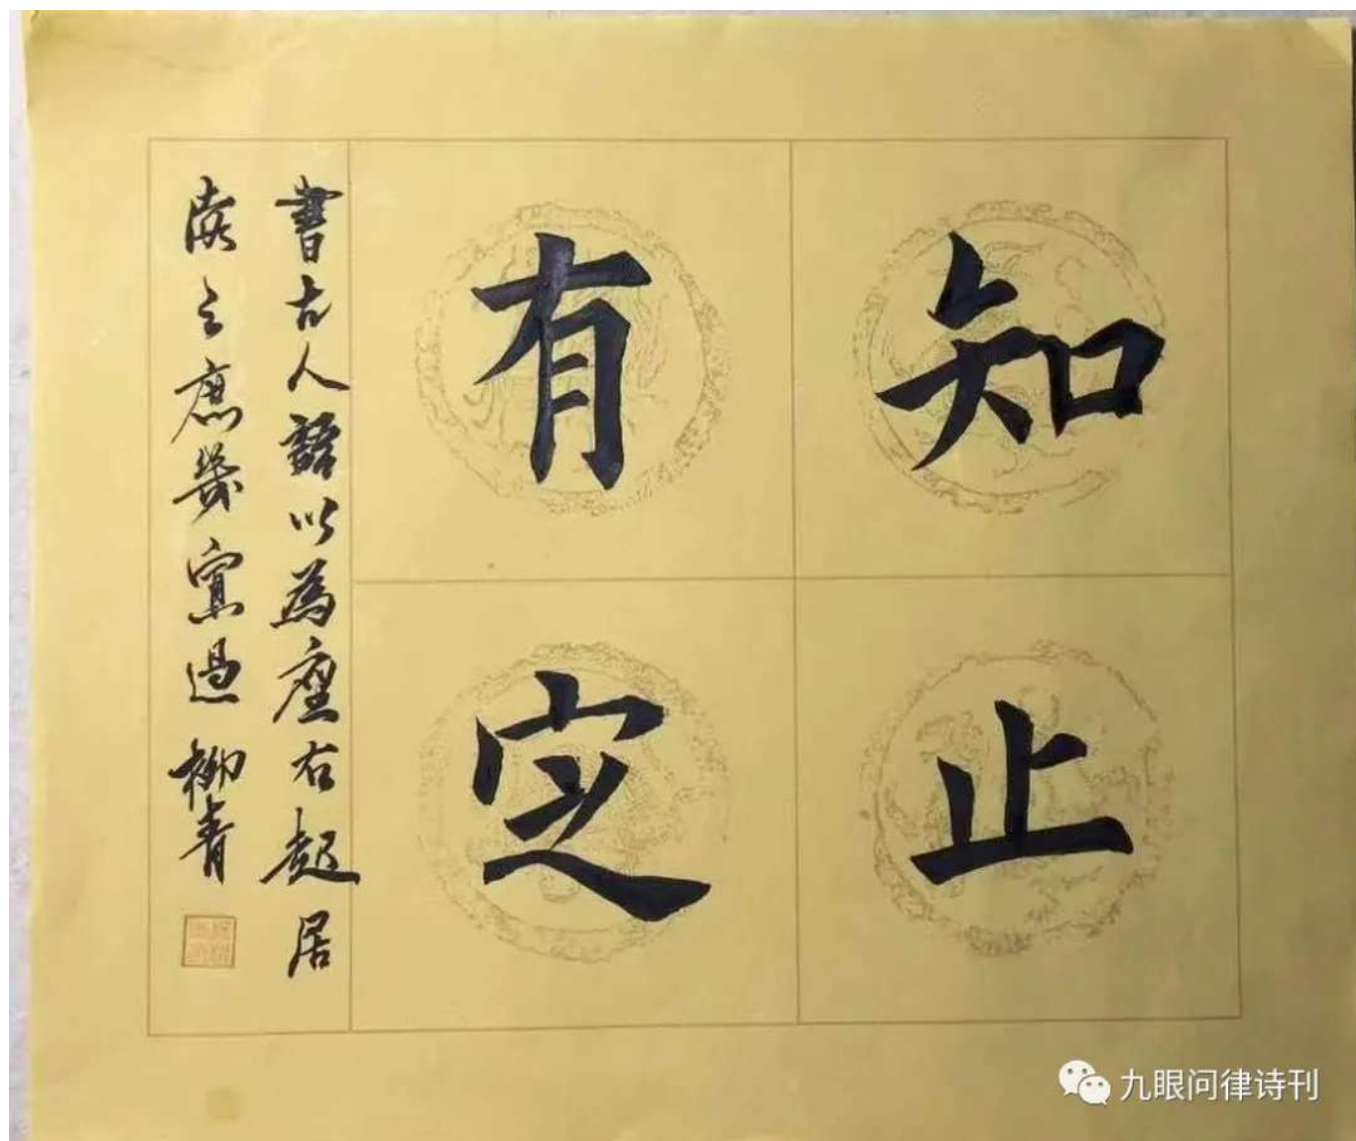 知止
有定
書古人語以為座右起居
誦之庶幾寡過 柳青
九眼问律诗刊